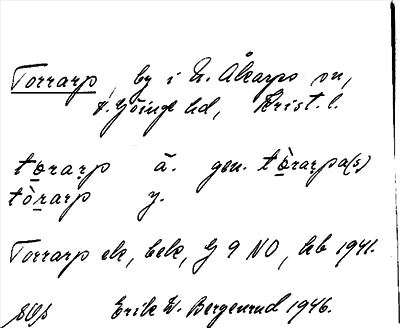 Torrarp, by i N. Åkarps sn,
V. Göinge hd, Krist. l.
tọrarp ä. gen. tọ̀rarpa(s)
tọ̀rarp y.
Torrarp ek, bebe, G 9 NO, hb 1941.
Erik W. Bergenrud 1946.